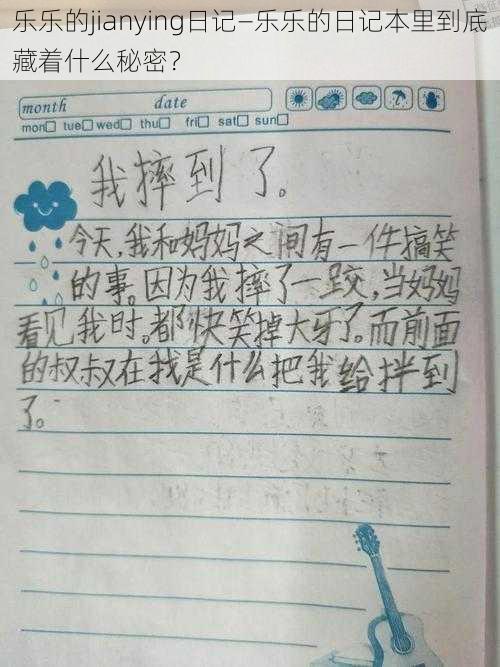 乐乐的jianying日记—乐乐的日记本里到底
藏着什么秘密？
month date
mon tue wed thu fri sat sun
我摔到了。
今天,我和妈妈之间有一件搞笑
的事。因为我摔了一跤,当妈妈
看见我时。都快笑掉大牙了。而前面
的叔叔在找是什么把我给拌到
了。